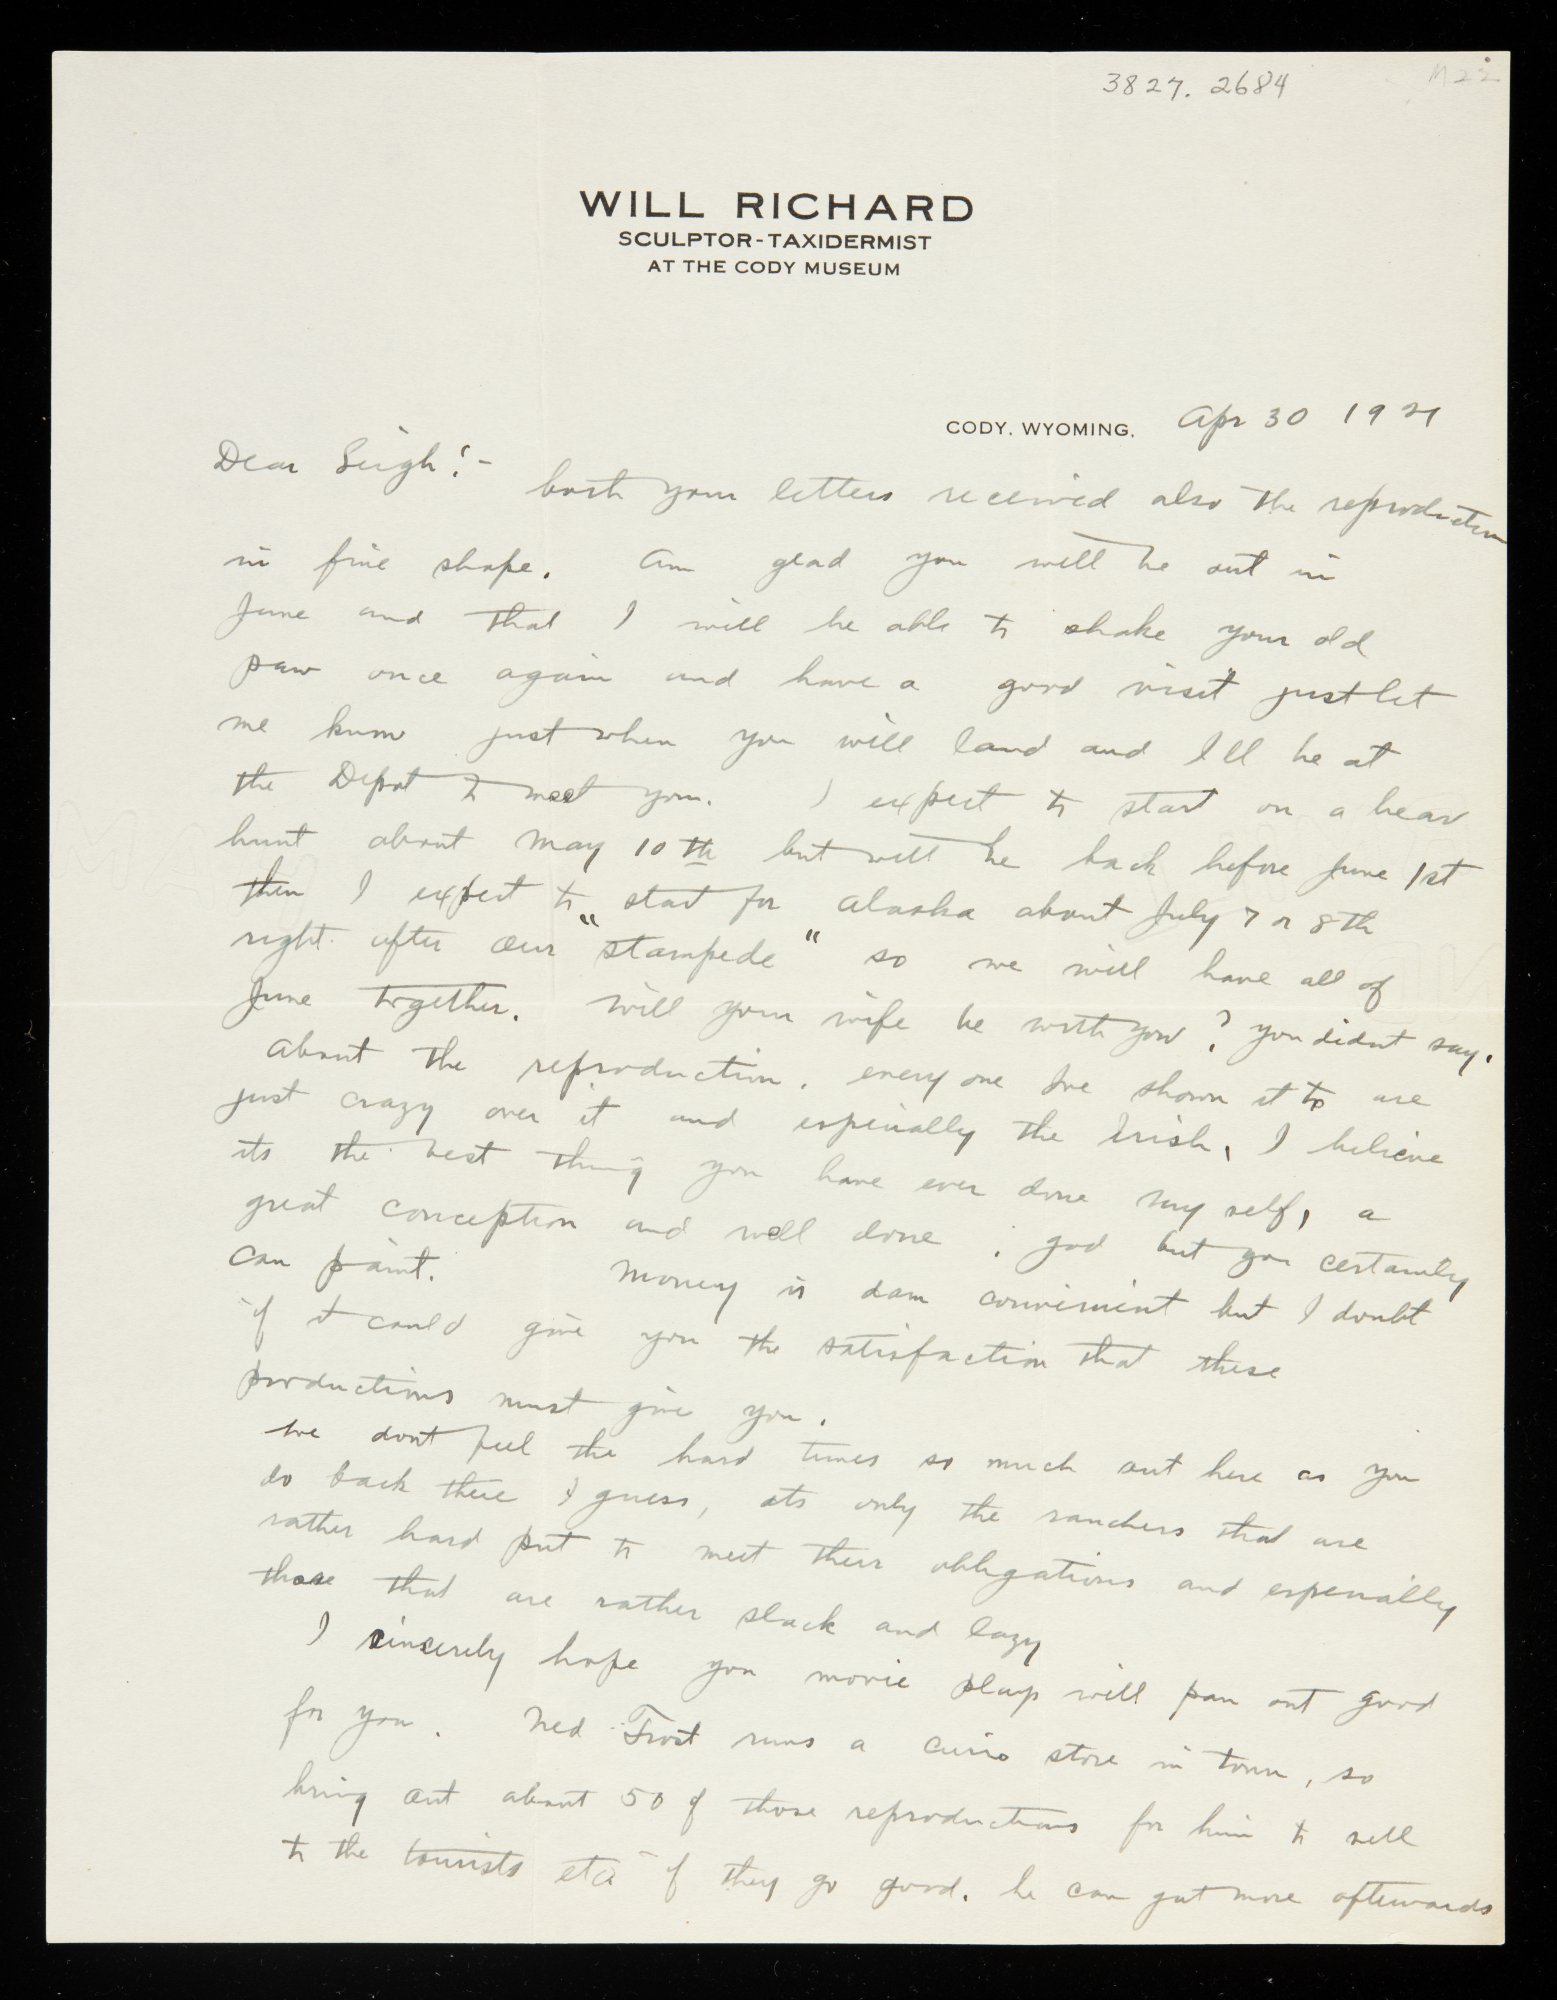 3827.2684
M22
WILL RICHARD
SCULPTOR-TAXIDERMIST
AT THE CODY MUSEUM
CODY, WYOMING, Apr 30 1921
Dear Leigh!-
both your letters received also the reproduction
in fine shape. Am glad you will be out in
June and that I will be able to shake your old
paw once again and have a good visit just let
me know just when you will land and Ill be at
the Depot to meet you. I expect to start on a bear
hunt about May 10th but will be back before June 1st
then I expect to start for Alaska about July 7 or 8th
right after our "Stampede" so we will have all of
June together. Will your wife be with you? you didnt say.
About the reproduction. every one Ive shown it to are
just crazy over it and espicially the Irish, I believe
its the best thing you have ever done my self, a
great conception and well done. god but you certainly
can paint. Money is dam convienient but I doubt
if it could give you the satisfaction that these
productions must give you.
We dont feel the hard times so much out here as you
do back there I guess, its only the ranchers that are
rather hard put to meet their obligations and espenially
those that are rather slack and lazy
I sincerely hope you movie plays will pan out good
for you. Ned Frost runs a curio store in town, so
bring out about 50 of those reproductions for him to sell
to the tourists etc if they go good. he can get more afterwards